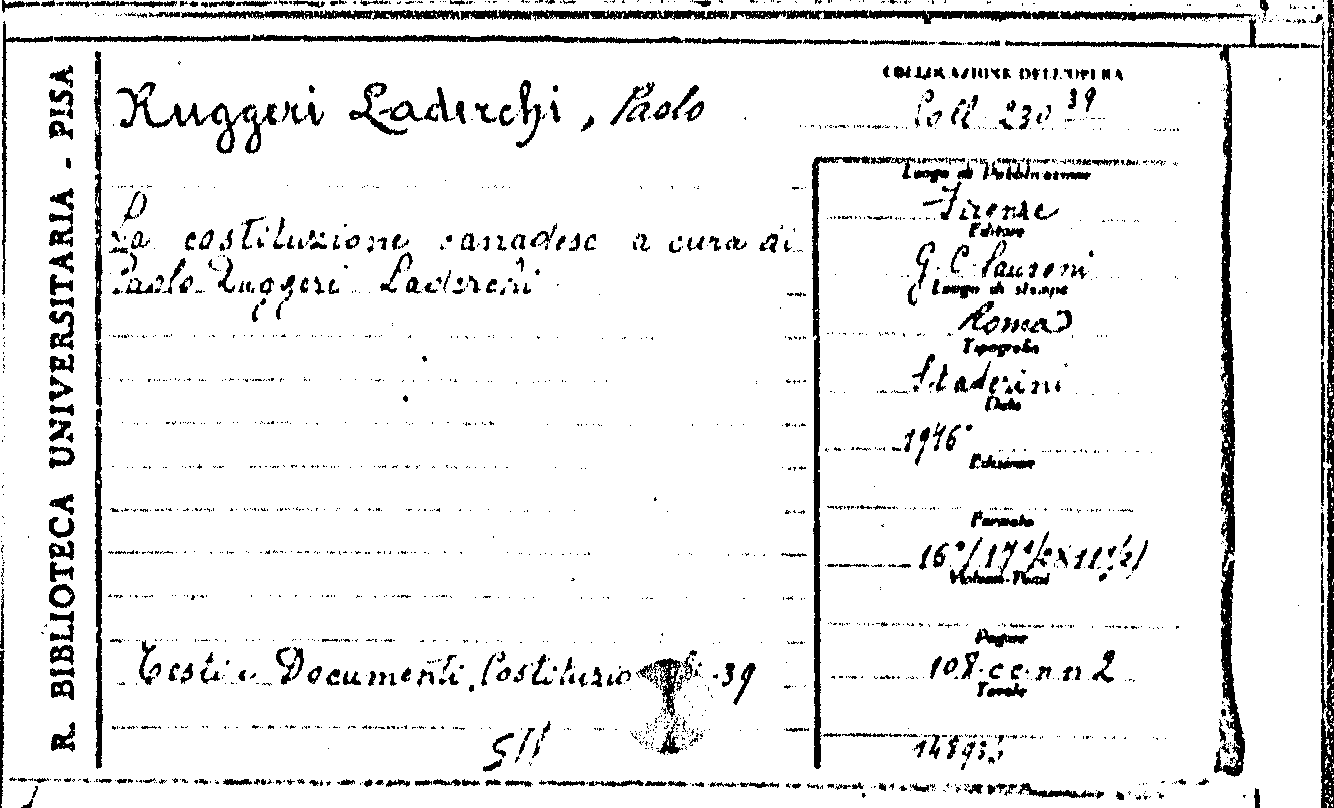 R. BIBLIOTECA UNIVERSITARIA - PISA
Ruggeri Laderchi, Paolo
La costituzione canadese a cura di
Paolo Ruggeri Laderchi
Testi e Documenti, 39
COLLOCAZIONE DELL'OPERA
Coll. 230 39
Luogo di Pubblicazione
Firenze
Editore
G. C. Sansoni
Luogo di stampa
Roma
Tipografia
Staderini
Data
1946
Edizione
Formato
16° (17 1/2 X 11 1/2)
Volumi-Tomi
Pagine
108. cc. n n 2
Tavole